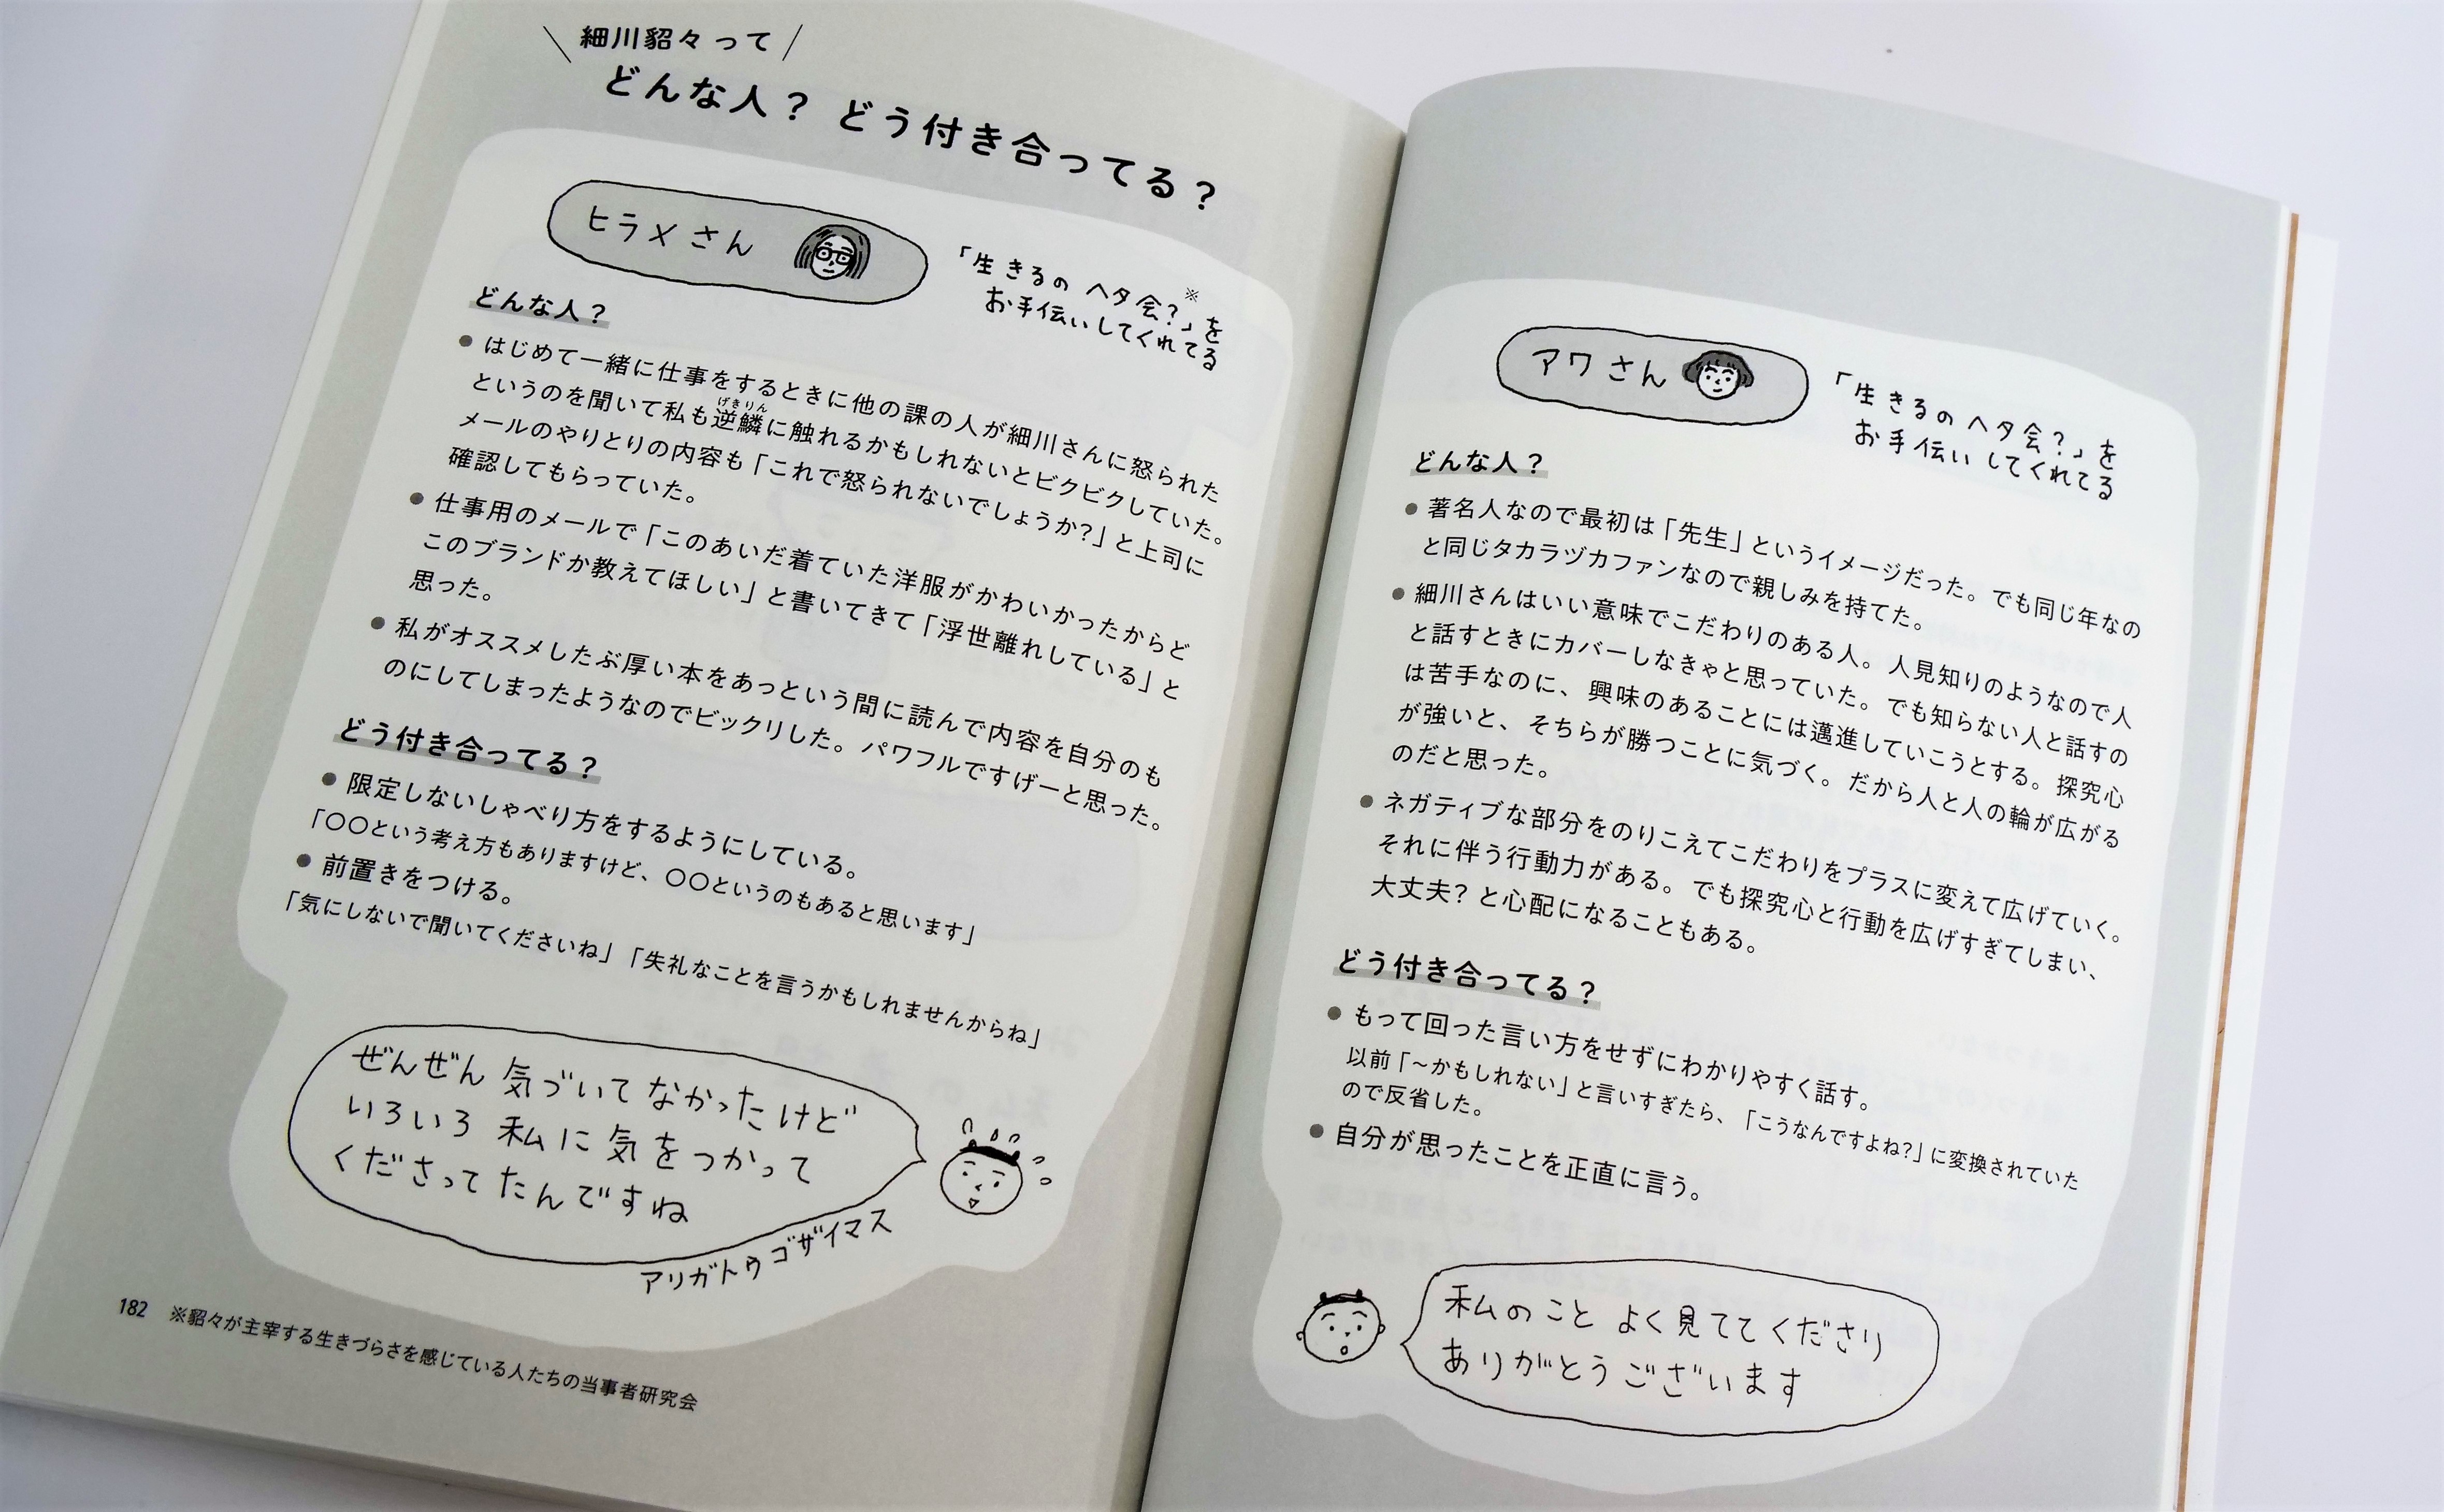 細川貂々って
どんな人？ どう付き合ってる？
ヒラメさん
「生きるのヘタ会？」※を
お手伝いしてくれてる
どんな人？
● はじめて一緒に仕事をするときに他の課の人が細川さんに怒られた
というのを聞いて私も逆鱗(げきりん)に触れるかもしれないとビクビクしていた。
メールのやりとりの内容も「これで怒られないでしょうか？」と上司に
確認してもらっていた。
● 仕事用のメールで「このあいだ着ていた洋服がかわいかったからど
このブランドか教えてほしい」と書いてきて「浮世離れしている」と
思った。
● 私がオススメしたぶ厚い本をあっという間に読んで内容を自分のも
のにしてしまったようなのでビックリした。パワフルですげーと思った。
どう付き合ってる？
● 限定しないしゃべり方をするようにしている。
「〇〇という考え方もありますけど、〇〇というのもあると思います」
● 前置きをつける。
「気にしないで聞いてくださいね」「失礼なことを言うかもしれませんからね」
ぜんぜん 気づいて なかったけど
いろいろ 私に 気を つかって
くださって たんですね
アリガトウゴザイマス
182 ※貂々が主宰する生きづらさを感じている人たちの当事者研究会
アワさん
「生きるのヘタ会？」を
お手伝いしてくれてる
どんな人？
● 著名人なので最初は「先生」というイメージだった。でも同じ年なの
と同じタカラヅカファンなので親しみを持てた。
● 細川さんはいい意味でこだわりのある人。人見知りのようなので人
と話すときにカバーしなきゃと思っていた。でも知らない人と話すの
は苦手なのに、興味のあることには邁進していこうとする。探究心
が強いと、そちらが勝つことに気づく。だから人と人の輪が広がる
のだと思った。
● ネガティブな部分をのりこえてこだわりをプラスに変えて広げていく。
それに伴う行動力がある。でも探究心と行動を広げすぎてしまい、
大丈夫？と心配になることもある。
どう付き合ってる？
● もって回った言い方をせずにわかりやすく話す。
以前「〜かもしれない」と言いすぎたら、「こうなんですよね？」に変換されていた
ので反省した。
● 自分が思ったことを正直に言う。
私のこと よく見ててくださり
ありがとうございます